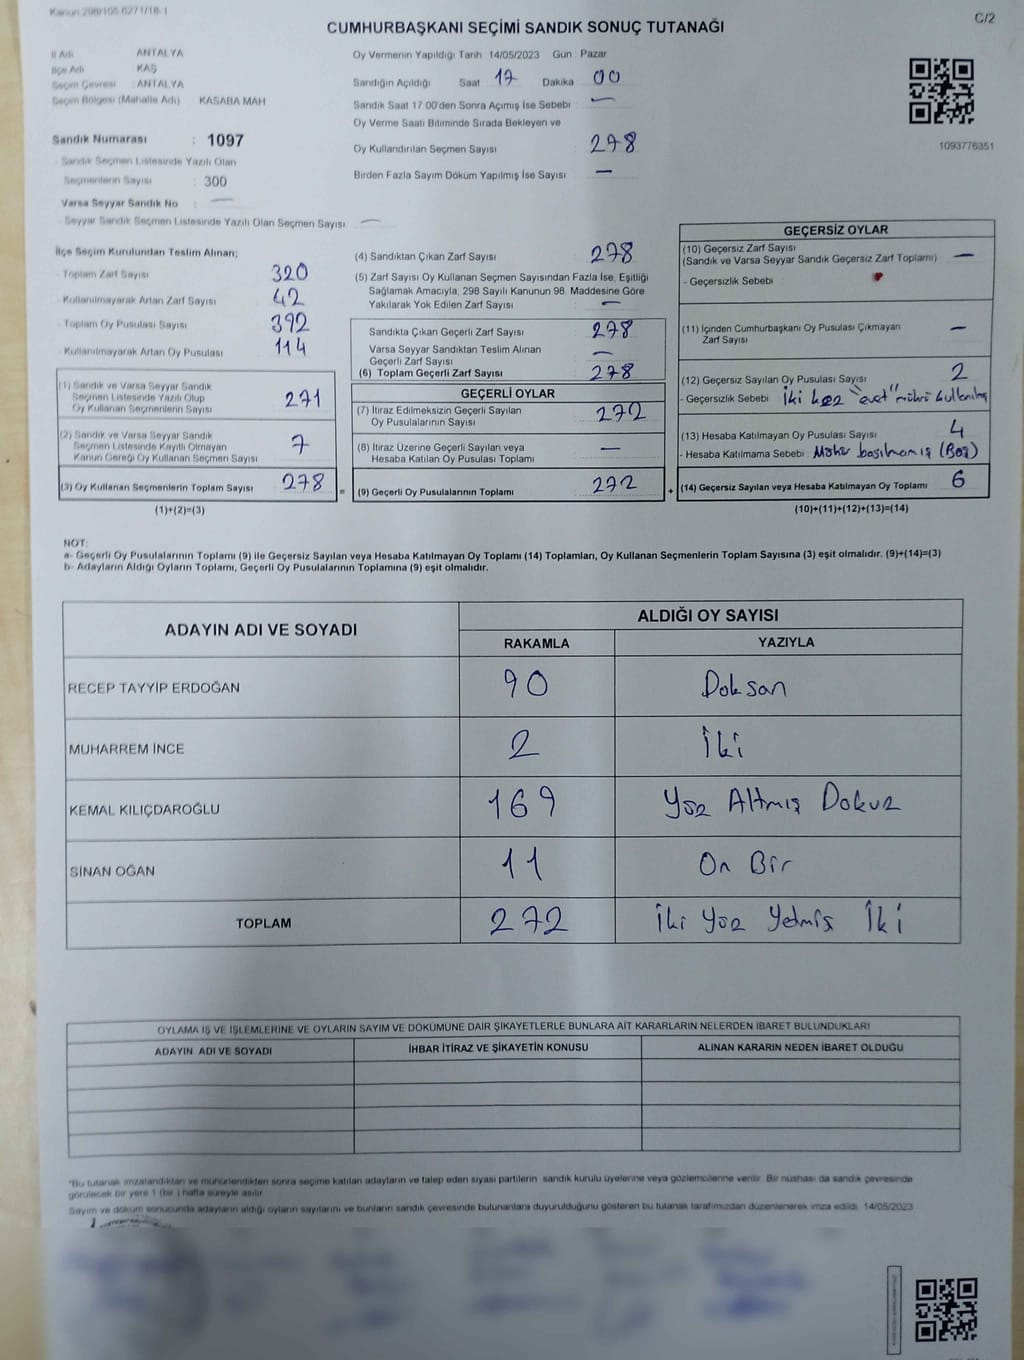 Kanun:298/105,6271/18-1
C/2
CUMHURBAŞKANI SEÇİMİ SANDIK SONUÇ TUTANAĞI
İl Adı ANTALYA
İlçe Adı KAŞ
Seçim Çevresi : ANTALYA
Seçim Bölgesi (Mahalle Adı) KASABA MAH
Oy Vermenin Yapıldığı Tarih 14/05/2023 Gün : Pazar
Sandığın Açıldığı Saat 17 Dakika 00
Sandık Saat 17 00'den Sonra Açımış İse Sebebi : —
Oy Verme Saati Bitiminde Sırada Bekleyen ve
Oy Kullandırılan Seçmen Sayısı : 278
Birden Fazla Sayım Döküm Yapılmış İse Sayısı : —
1093776351
Sandık Numarası : 1097
- Sandık Seçmen Listesinde Yazılı Olan
Seçmenlerin Sayısı : 300
Varsa Seyyar Sandık No : —
- Seyyar Sandık Seçmen Listesinde Yazılı Olan Seçmen Sayısı : —
İlçe Seçim Kurulundan Teslim Alınan;
- Toplam Zarf Sayısı 320
- Kullanılmayarak Artan Zarf Sayısı 42
- Toplam Oy Pusulası Sayısı 392
- Kullanılmayarak Artan Oy Pusulası 114
(1) Sandık ve Varsa Seyyar Sandık
Seçmen Listesinde Yazılı Olup
Oy Kullanan Seçmenlerin Sayısı 271
(2) Sandık ve Varsa Seyyar Sandık
Seçmen Listesinde Kayıtlı Olmayan
Kanun Gereği Oy Kullanan Seçmen Sayısı 7
(3) Oy Kullanan Seçmenlerin Toplam Sayısı 278
(1)+(2)=(3)
(4) Sandıktan Çıkan Zarf Sayısı 278
(5) Zarf Sayısı Oy Kullanan Seçmen Sayısından Fazla İse, Eşitliği
Sağlamak Amacıyla; 298 Sayılı Kanunun 98. Maddesine Göre
Yakılarak Yok Edilen Zarf Sayısı : —
Sandıkta Çıkan Geçerli Zarf Sayısı : 278
Varsa Seyyar Sandıktan Teslim Alınan
Geçerli Zarf Sayısı : —
(6) Toplam Geçerli Zarf Sayısı : 278
GEÇERLİ OYLAR
(7) İtiraz Edilmeksizin Geçerli Sayılan
Oy Pusulalarının Sayısı : 272
(8) İtiraz Üzerine Geçerli Sayılan veya
Hesaba Katılan Oy Pusulası Toplamı : —
= (9) Geçerli Oy Pusulalarının Toplamı : 272
GEÇERSİZ OYLAR
(10) Geçersiz Zarf Sayısı
(Sandık ve Varsa Seyyar Sandık Geçersiz Zarf Toplamı) —
- Geçersizlik Sebebi :
(11) İçinden Cumhurbaşkanı Oy Pusulası Çıkmayan
Zarf Sayısı —
(12) Geçersiz Sayılan Oy Pusulası Sayısı : 2
- Geçersizlik Sebebi : İki kez "evet" mührü kullanılmış
(13) Hesaba Katılmayan Oy Pusulası Sayısı : 4
- Hesaba Katılmama Sebebi : Mühür basılmamış (Boş)
+ (14) Geçersiz Sayılan veya Hesaba Katılmayan Oy Toplamı : 6
(10)+(11)+(12)+(13)=(14)
NOT:
a- Geçerli Oy Pusulalarının Toplamı (9) ile Geçersiz Sayılan veya Hesaba Katılmayan Oy Toplamı (14) Toplamları, Oy Kullanan Seçmenlerin Toplam Sayısına (3) eşit olmalıdır. (9)+(14)=(3)
b- Adayların Aldığı Oyların Toplamı, Geçerli Oy Pusulalarının Toplamına (9) eşit olmalıdır.
ADAYIN ADI VE SOYADI
ALDIĞI OY SAYISI
RAKAMLA YAZIYLA
RECEP TAYYİP ERDOĞAN 90 Doksan
MUHARREM İNCE 2 İki
KEMAL KILIÇDAROĞLU 169 Yüz Altmış Dokuz
SİNAN OĞAN 11 On Bir
TOPLAM 272 İki Yüz Yetmiş İki
OYLAMA İŞ VE İŞLEMLERİNE VE OYLARIN SAYIM VE DÖKÜMÜNE DAİR ŞİKAYETLERLE BUNLARA AİT KARARLARIN NELERDEN İBARET BULUNDUKLARI
ADAYIN ADI VE SOYADI İHBAR İTİRAZ VE ŞİKAYETİN KONUSU ALINAN KARARIN NEDEN İBARET OLDUĞU
*Bu tutanak imzalandıktan ve mühürlendikten sonra seçime katılan adayların ve talep eden siyasi partilerin sandık kurulu üyelerine veya gözlemcilerine verilir. Bir nüshası da sandık çevresinde
görülecek bir yere 1 (bir ) hafta süreyle asılır.
Sayım ve döküm sonucunda adayların aldığı oyların sayılarını ve bunların sandık çevresinde bulunanlara duyurulduğunu gösteren bu tutanak tarafımızdan düzenlenerek imza edildi. 14/05/2023